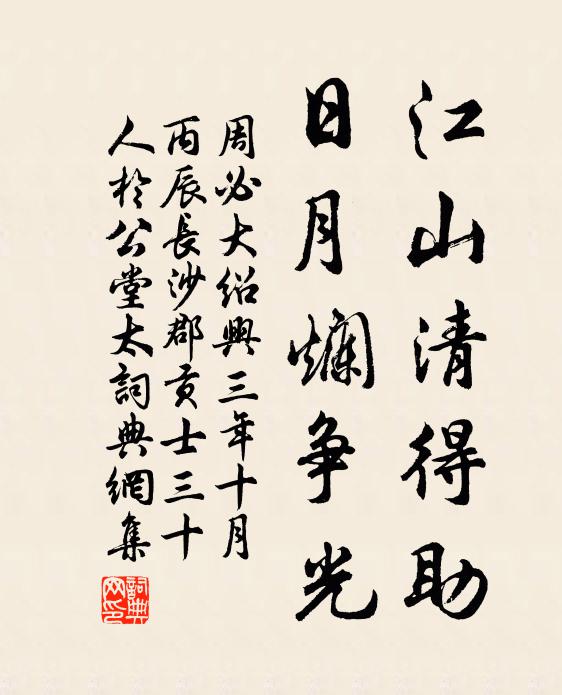 江山清得助
日月爛争光
周必大紹興三年十月
丙辰長沙郡貢士三十
人於公堂太詞典網集
詞典網印